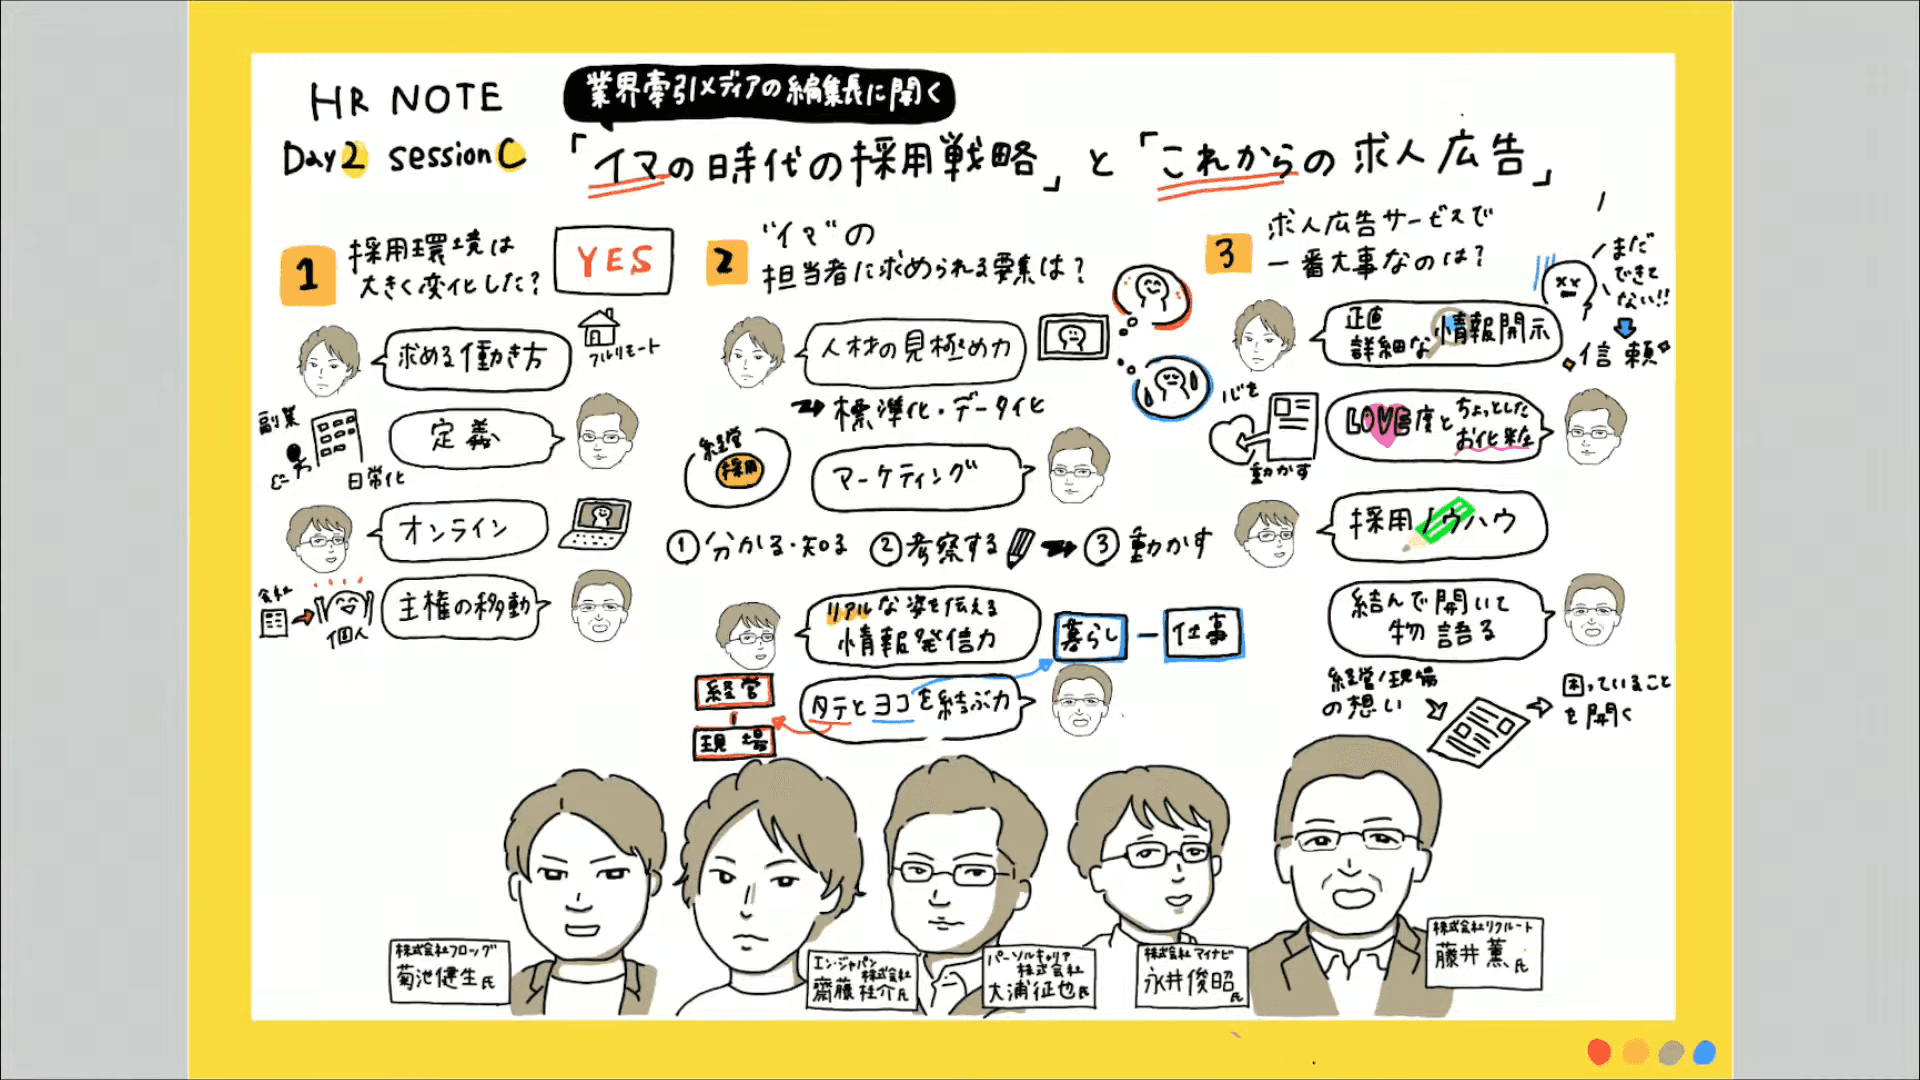 HR NOTE
Day2 sessionC
業界牽引メディアの編集長に聞く
「イマの時代の採用戦略」と「これからの求人広告」
1
採用環境は
大きく変化した?
YES
求める働き方
フルリモート
副業
日常化
定義
オンライン
会社
個人
主権の移動
2
"イマ"の
担当者に求められる要素は?
人材の見極め力
標準化・データ化
経営
採用
マーケティング
①分かる・知る ②考察する ③動かす
リアルな姿を伝える
情報発信力
暮らし
仕事
経営
現場
タテとヨコを結ぶ力
3
求人広告サービスで
一番大事なのは?
正直
詳細な情報開示
まだ
できて
ない!!
信頼
心を
動かす
LOVE度と
ちょっとした
お化粧
採用ノウハウ
結んで開いて
物語る
経営/現場
の想い
困っていること
を聞く
株式会社フロッグ
菊池健生氏
エン・ジャパン
株式会社
齋藤桂介氏
パーソルキャリア
株式会社
大浦征也氏
株式会社マイナビ
永井俊昭氏
株式会社リクルート
藤井薫氏